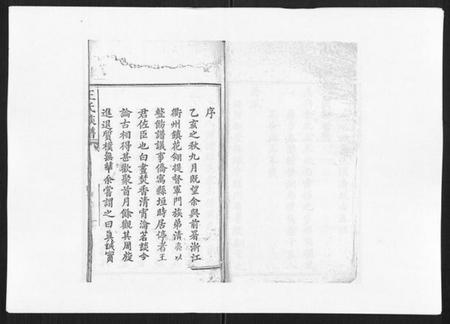 王氏族譜
序
乙亥之秋九月既望余與前署浙江
衢州鎮花翎提督軍門族弟清奕以
整飭譜議事僑寓縣垣時居停者王
君佐臣也白晝焚香清宵瀹茗談今
論古相得甚歡聚首月餘觀其周旋
進退質樸無華余嘗謂之曰真誠實